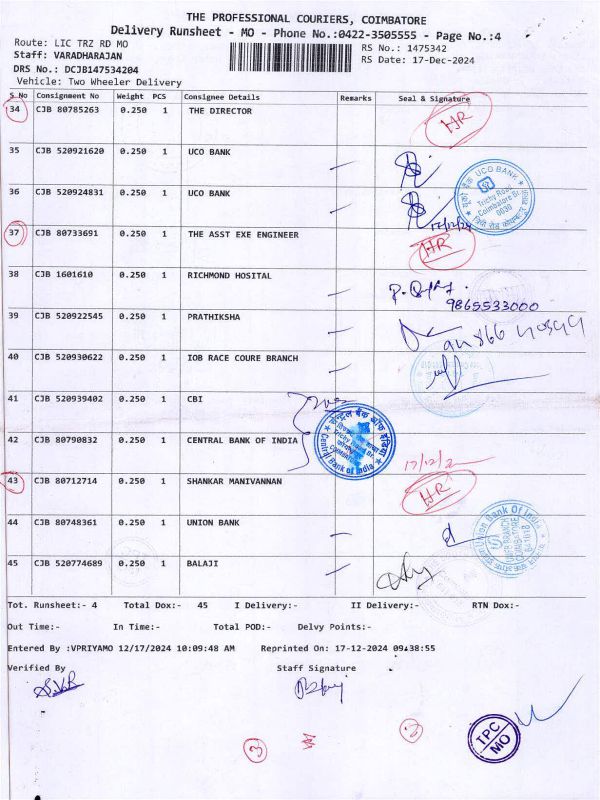 THE PROFESSIONAL COURIERS, COIMBATORE
Delivery Runsheet - MO - Phone No.:0422-3505555 - Page No.:4
Route: LIC TRZ RD MO
RS No.: 1475342
Staff: VARADHARAJAN
RS Date: 17-Dec-2024
DRS No.: DCJB147534204
Vehicle: Two Wheeler Delivery
S No Consignment No Weight PCS Consignee Details Remarks Seal & Signature
34 CJB 80785263 0.250 1 THE DIRECTOR HR
35 CJB 520921620 0.250 1 UCO BANK
UCO BANK
Trichy Road
Coimbatore Br.
36 CJB 520924831 0.250 1 UCO BANK
17/12/24
37 CJB 80733691 0.250 1 THE ASST EXE ENGINEER HR
38 CJB 1601610 0.250 1 RICHMOND HOSITAL
9865533000
39 CJB 520922545 0.250 1 PRATHIKSHA
40 CJB 520930622 0.250 1 IOB RACE COURE BRANCH
41 CJB 520939402 0.250 1 CBI
सेन्ट्रल बैंक ऑफ इंडिया
Central Bank of India
42 CJB 80790832 0.250 1 CENTRAL BANK OF INDIA
43 CJB 80712714 0.250 1 SHANKAR MANIVANNAN HR
44 CJB 80748361 0.250 1 UNION BANK
Union Bank Of India
45 CJB 520774689 0.250 1 BALAJI
Tot. Runsheet:- 4 Total Dox:- 45 I Delivery:- II Delivery:- RTN Dox:-
Out Time:- In Time:- Total POD:- Delvy Points:-
Entered By :VPRIYAMO 12/17/2024 10:09:48 AM Reprinted On: 17-12-2024 09:38:55
Verified By Staff Signature
TPC
MO